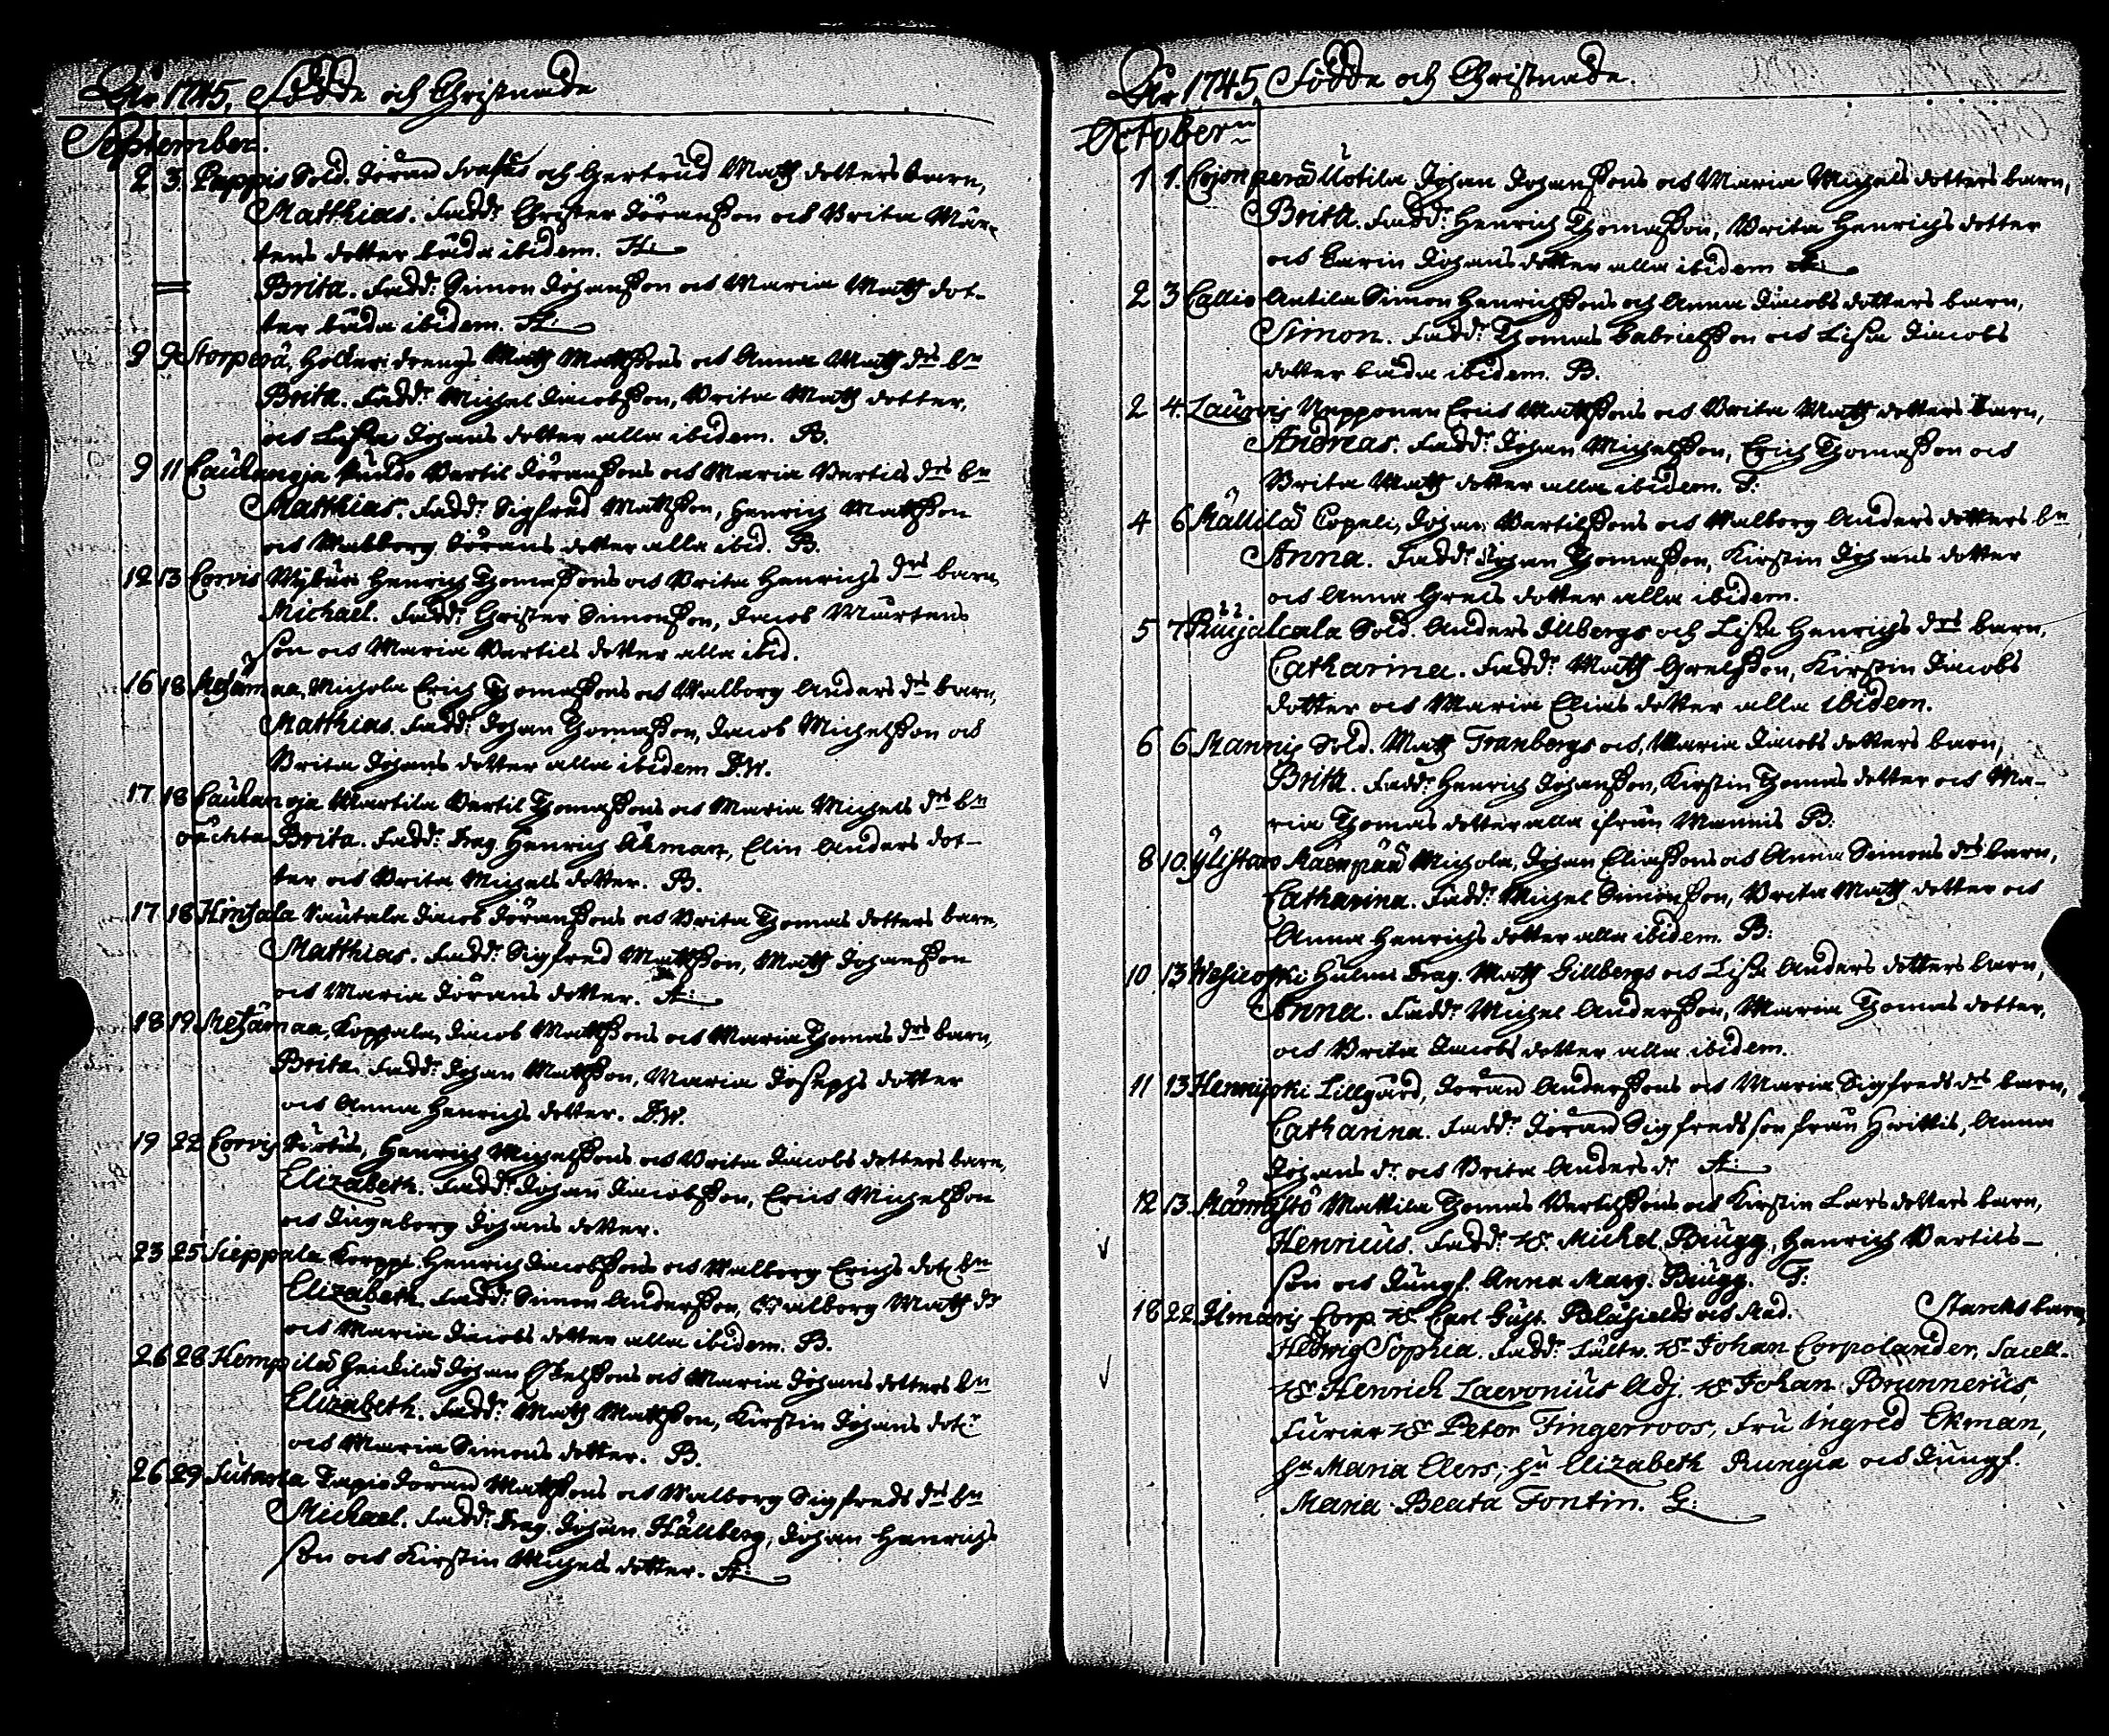 Åhr 1745, Födde och Christnade
September.
2 3. Pappis Sold. Jöran och Gertrud Math dotters barn,
Matthias. Fadd: Christer Jöransson och Brita Mår-
tens dotter båda ibidem. A:
Brita. Fadd: Simon Johansson och Maria Math dot-
ter båda ibidem. A:
9 9 Storperä, drengs Math Mattssons och Anna Math drs bn
Brita. Fadd: Michel Jacobsson, Brita Math dotter,
och Lisa Johans dotter alla ibidem. B.
9 11 Caukanoja Bertil Jöranssons och Maria Bertils drs bn
Matthias. Fadd: Sigfred Mattsson, Henrich Mattsson
och Walborg Jörans dotter alla ibid. B.
12 13 Corvis Henrich Thomassons och Brita Henrichs drs barn,
Michael. Fadd: Christer Simonsson, Jacob Mårtens
son och Maria Bertils dotter alla ibid.
16 18 Metämaa, Michola Erich Thomassons och Walborg Anders drs barn,
Matthias. Fadd: Johan Thomasson, Jacob Michelsson och
Brita Johans dotter alla ibidem D.W.
17 18 Caukanoja Martila Bertil Thomassons och Maria Michels drs bn
oächta Brita. Fadd: Drag. Henrich Åkman, Elin Anders dot-
ter och Brita Michels dotter. B.
17 18 Hinsala Sautala Jacob Jöranssons och Brita Thomas dotters barn,
Matthias. Fadd: Sigfred Mattsson, Math Johansson
och Maria Jörans dotter. A:
18 19 Metämaa, Koppala, Jacob Mattssons och Maria Thomas drs barn,
Brita. Fadd: Johan Mattsson, Maria Josephs dotter
och Anna Henrichs dotter. D.W.
19 22 Corvis Henrich Michelssons och Brita Jacobs dotters barn,
Elizabeth. Fadd: Johan Jacobsson, Erich Michelsson
och Ingeborg Johans dotter.
23 25 Sieppala Korppi Henrich Jacobssons och Walborg Erichs dot: bn
Elizabeth. Fadd: Simon Andersson, Walborg Math dr
och Maria Jacobs dotter alla ibidem. B.
26 28 Hempilä Heickilä Johan Eskelssons och Maria Johans dotters bn
Elizabeth. Fadd: Math Mattsson, Kirstin Johans dotr
och Maria Simons dotter. B.
26 29 Sutarla Tapio Jöran Mattssons och Walborg Sigfreds drs bn
Michael. Fadd: Drag. Johan Hällberg, Johan Henrichs
son och Kirstin Michels dotter. A:
Åhr 1745 Födde och Christnade.
October
1 1. Cojonperä Uotila Johan Johanssons och Maria Michels dotters barn,
Brita. Fadd: Henrich Thomasson, Brita Henrichs dotter
och Carin Johans dotter alla ibidem A:
2 3 Callio Antila Simon Henrichssons och Anna Jacobs dotters barn,
Simon. Fadd: Thomas Gabrielsson och Lisa Jacobs
dotter båda ibidem. B.
2 4. Laurois Unpponen Erich Mattssons och Brita Math dotters barn,
Andreas. Fadd: Johan Michelsson, Erich Thomasson och
Brita Math dotter alla ibidem. F:
4 6 Mällilä Copeli, Johan Bertilssons och Walborg Anders dotters bn
Anna. Fadd: Johan Thomasson, Kirstin Johans dotter
och Anna Grels dotter alla ibidem.
5 7 Sold. Anders Illbergs och Lisa Henrichs drs barn,
Catharina. Fadd: Math Grelsson, Kirstin Jacobs
dotter och Maria Elias dotter alla ibidem.
6 6 Mannis Sold. Math Tranbergs och Maria Jacobs dotters barn,
Brita. Fadd: Henrich Johansson, Kirstin Thomas dotter och Ma-
ria Thomas dotter alla ifrån Mannis B:
8 10. Ylistaro Mäenpää Michola, Johan Eliassons och Anna Simons drs barn,
Catharina. Fadd: Michel Simonsson, Brita Math dotter och
Anna Henrichs dotter alla ibidem. B:
10 13 Wesicoski Hulmi Drag. Math Gillbergs och Lisa Anders dotters barn,
Anna. Fadd: Michel Andersson, Maria Thomas dotter,
och Brita Jacobs dotter alla ibidem.
11 13 Hennijoki Lillgård, Jöran Anderssons och Maria Sigfreds drs barn,
Catharina. Fadd: Jöran Sigfredsson från Hvittis, Anna
Johans dr och Brita Anders dr A:
12 13. Mämmistö Mattila Thomas Bertilssons och Kirstin Lars dotters barn,
Henricus. Fadd: Hr Michel Brugg, Henrich Bertils-
son och Jungf. Anna Marg. Brugg. F:
18 22 Ilmaris Corp. Hr Carl Gust. Blåfields och Mad. Starcks barn
Hedwig Sophia. Fadd: Fältv. Hr Johan Corpolander, Sacell.
Hr Henrich Laevonius Adj. Hr Johan Brunnerus,
Furier Hr Peter Fingerroos, Fru Ingred Ekman,
hu Maria Elers, hu Elizabeth Rungia och Jungf.
Maria Beata Fontin. G: